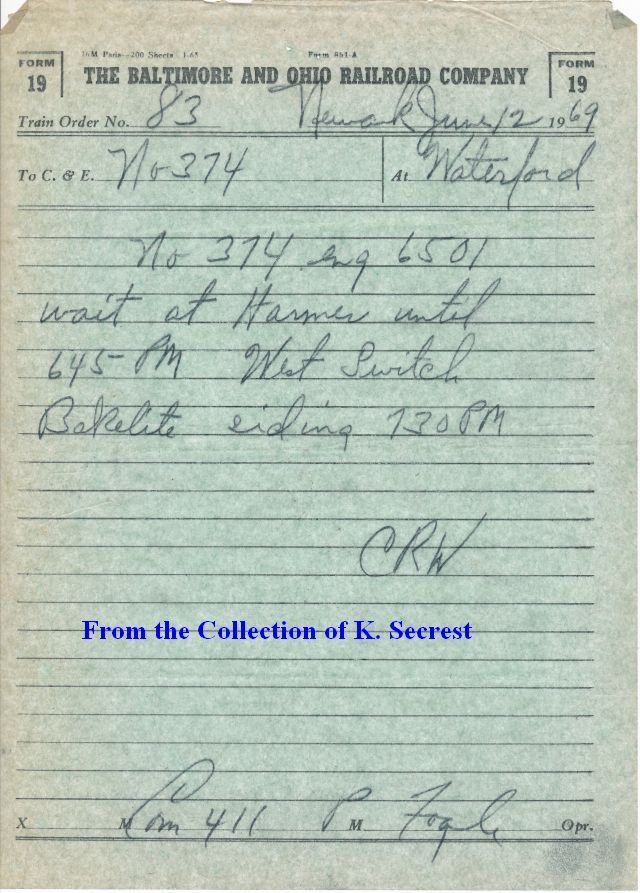 76M Pads—200 Sheets 1-65 Form 861-A
FORM 19 THE BALTIMORE AND OHIO RAILROAD COMPANY FORM 19
Train Order No. 83 Newark June 12 1969
To C. & E. No 374 At Waterford
No 374 eng 6501
wait at Harmer until
645 PM West Switch
Bakelite siding 730 PM
CRW
From the Collection of K. Secrest
X M Com 411 P M Fogle Opr.